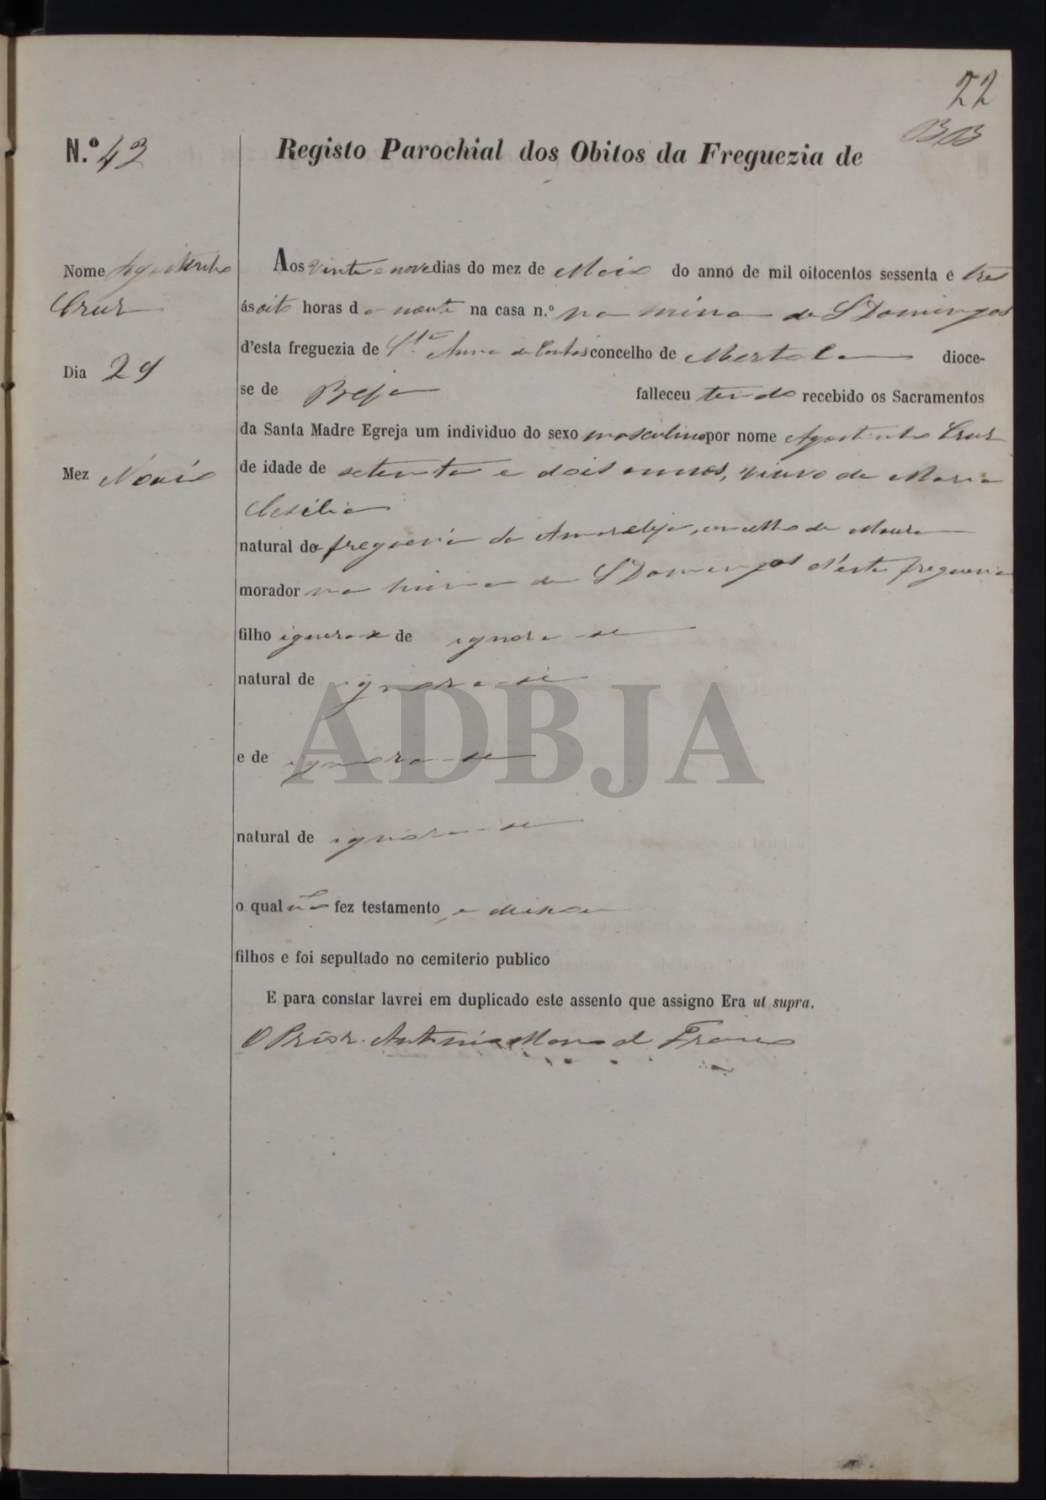 22
N.º 43
Registo Parochial dos Obitos da Freguezia de
Nome Agostinho
Cruz
Dia 29
Mez
Aos vinte e nove dias do mez de do anno de mil oitocentos sessenta e tres
ás oito horas da noute na casa n.º na mina de S Domingos
d'esta freguezia de Sta Anna de Cambas concelho de Mertola dioce-
se de Beja falleceu tendo recebido os Sacramentos
da Santa Madre Egreja um individuo do sexo masculino por nome Agostinho Cruz
de idade de setenta e dois annos, viuvo de Maria
Cesilia
natural da freguezia de Amareleja, concelho de Moura
morador na mina de S Domingos d'esta freguezia
filho ignora-se de ignora-se
natural de ignora-se
e de ignora-se
natural de ignora-se
o qual não fez testamento, e deixou
filhos e foi sepultado no cemiterio publico
E para constar lavrei em duplicado este assento que assigno Era ut supra.
O Prior. Antonio Franco
ADBJA